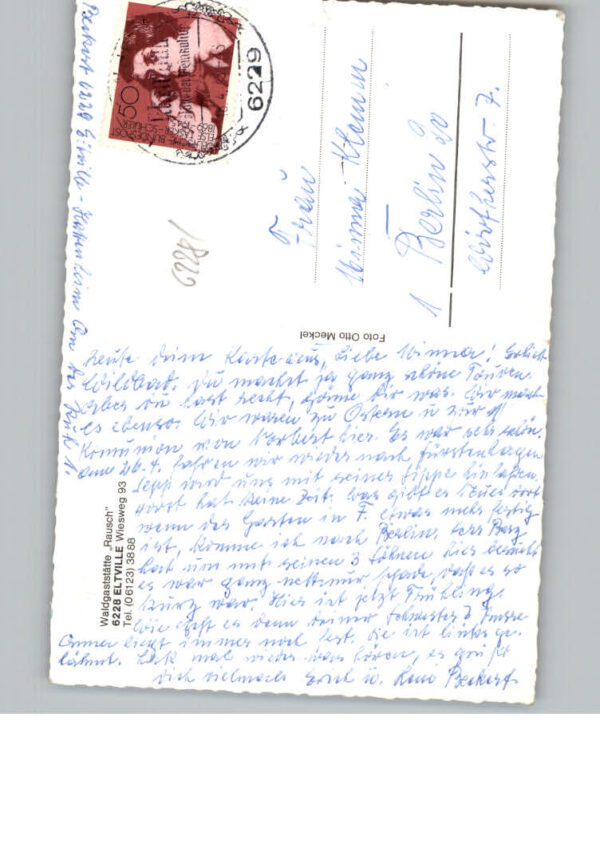 Beckert 6229 Eltville - Hattenheim
50
6229
62281
Frau
Minna Klemm
1 Berlin 20
7.
Foto Otto Meckel
Heute Deine Karte aus, Liebe Minna! Erhielt
Wildbad. Du machst ja ganz schöne Touren.
Aber du hast recht, gönne dir was. Wir machen
es ebenso. Wir waren zu Ostern u. zur
Komunion von Norbert hier. Es war sehr schön.
am 26.4. fahren wir wieder nach Fürstenhagen
Sepp wird uns mit seiner Sippe hinfahren.
Horst hat keine Zeit. Was gibt es Neues dort
wenn der Garten in F. etwas mehr fertig
ist, komme ich nach Berlin.
hat uns mit seinen 3 Söhnen hier besucht
es war ganz nett nur schade, daß es so
kurz war. Hier ist jetzt Frühling.
Wie geht es denn deiner Schwester? Unsere
liegt immer noch fest, die ist links ge-
lähmt. Laß mal wieder was hören, es grüßt
dich vielmals Erich u. Leni Beckert
Waldgaststätte „Rausch“
6228 ELTVILLE Wiesweg 93
Tel. (06123) 3888